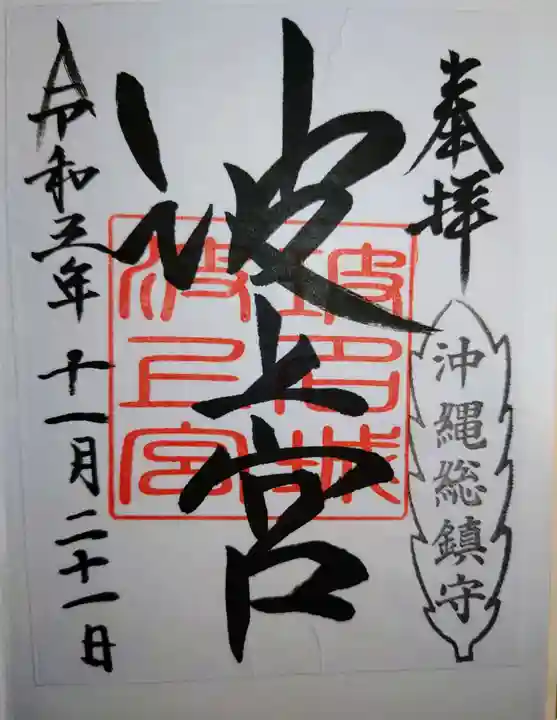 奉拝
沖縄総鎮守
波上宮
玻名城
波上宮
令和三年十一月二十一日